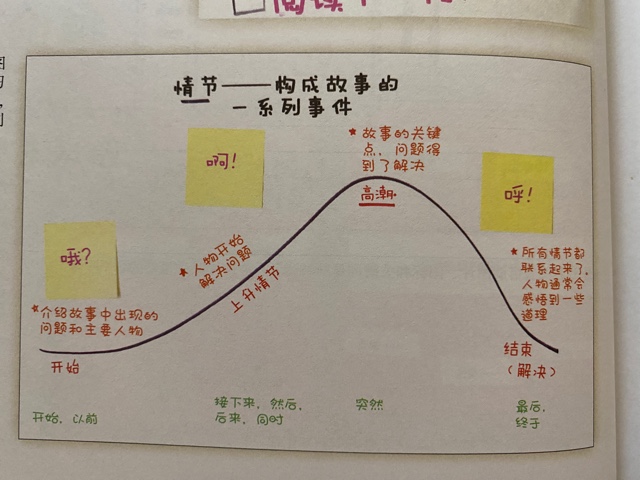 情节——构成故事的
一系列事件
哦？
★介绍故事中出现的
问题和主要人物
开始
开始，以前
啊！
★人物开始
解决问题
上升情节
接下来，然后，
后来，同时
★故事的关键
点，问题得
到了解决
高潮
突然
呼！
★所有情节都
联系起来了，
人物通常会
感悟到一些
道理
结束
（解决）
最后，
终于